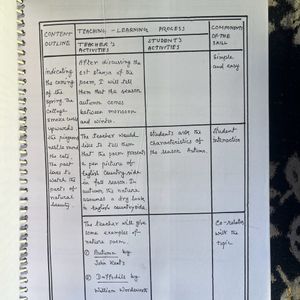 CONTENT
OUTLINE
TEACHING - LEARNING PROCESS
TEACHER'S
ACTIVITIES
STUDENT'S
ACTIVITIES
COMPONENTS
OF THE
SKILL
Indicating
the coming
of the
Spring. The
cottage
smoke curls
upwards.
the
nestle round
the cots.
The poet
loves to
watch the
parts of
natural
beauty.
After discussing the
1st stanza of the
poem, I will tell
them that the season
autumn comes
between monsoon
and winter.
Simple
and easy
The teacher would
like to tell them
that the poem present
a pen picture of
English Countryside
in fall season. In
autumn the nature
assumes a look
in English countryside.
Students ask the
characteristics of
the season Autumn.
Student
Interaction
The teacher will give
some examples of
nature poem.
① Autumn by
John Keats
② Daffodils by
William Wordsworth
Co-relation
with the
topic